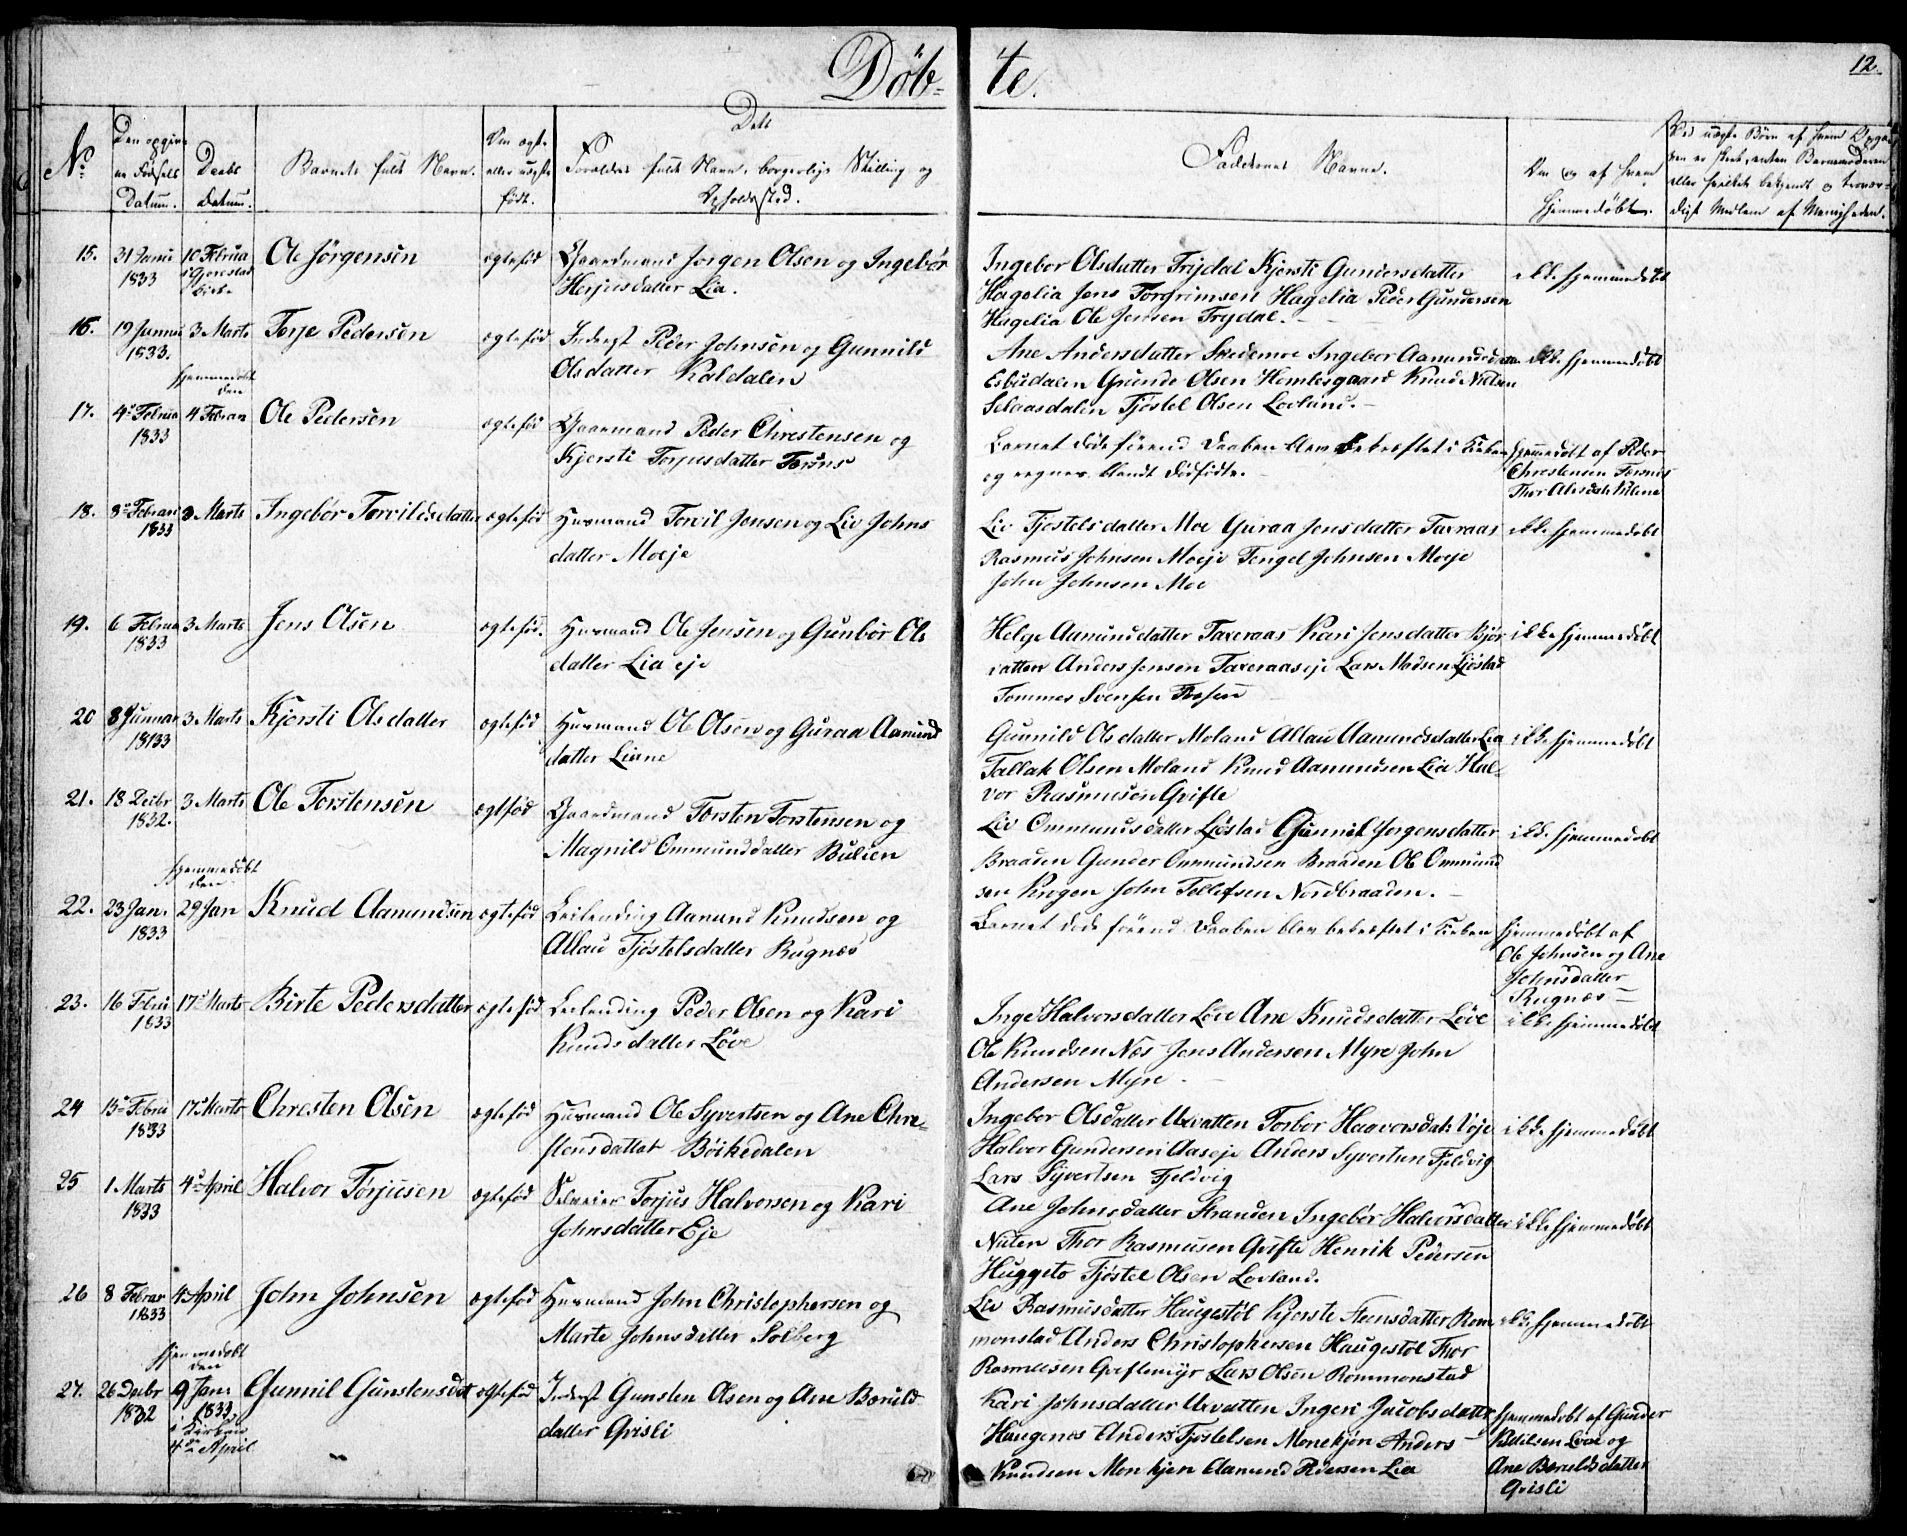 Döb- te.
12
No | Den opgivne Fødsels Datum. | Daabs Datum. | Barnets fulde Navn. | Om ægte eller uægte født. | Dets Forældres fulde Navn, borgerlige Stilling og Opholdssted. | Faddernes Navne. | Om og af hvem hjemmedøbt. | Ved uægte Børn af hvem
15. 31 Janu 1833 | 10 Februa | Ole Jörgensen | ægtefød | Gaardmand Jorgen Olsen og Ingebör
Herjusdatter Lia.
Ingebor Olsdatter Frydal Kjersti Gundersdatter
Hagelia Jens Torgrimsen Hagelia Peder Gundersen
Hagelia Ole Jensen Frydal.
ikke hjemmedöbt
16. 19 Januu 1833. | 3 Marts | Terje Pedersen | ægtefød | Inderst Peder Johnsen og Gunnild
Olsdatter Kaldalen
Ane Andersdatter Skedemoe Ingebor Aamundsdatter
Esbudalen Gunde Olsen Homlesgaard Knud Nielsen
Selaasdalen Tjöstel Olsen Lovland.
ikke hjemmedöbt
hjemmedöbt den
17. 4de Februa 1833 | 4 Febran | Ole Pedersen | ægtefød | Gaarmand Peder Chrestensen og
Kjersti Torjusdatter
Barnet döde förend Daaben blev bekræftet i Kirken
og regnes blandt dödfödte.
hjemmedöbt af Peder
Chrestensen
18. 8de Febrari 1833 | 3 Marts | Ingebör Torvildsdatter | ægtefød | Huusmand Torvil Jensen og Liv Johns
datter Moeje
Liv Tjöstelsdatter Moe Guraa Jensdatter Taxraas
Rasmus Johnsen Moeje Tengel Johnsen Moeje
John Johnsen Moe
ikke hjemmedöbt
19. 6 Februa 1833 | 3 Marts | Jens Olsen | ægtefød. | Huusmand Ole Jensen og Gunbör Ols
datter Lia eje
Helge Aamundatter Taxeraas Kari Jensdatter Björ
vatten Anders Jensen Taxeraaseje Lars Madsen Ljöstad
Tommes Svensen
ikke hjemmedöbt
20 8 Junuar 1833 | 3 Marts | Kjersti Olsdatter | ægtefød | Huusmand Ole Olsen og Guraa Aamund
datter Liene
Gunnild Olsdatter Moland Allau Aamundsdatter Lia
Tallak Olsen Moland Knud Aamundsen Lia Hal-
vor Rasmusen Grifte
ikke hjemmedöbt
21. 18 Decbr 1832. | 3 Marts | Ole Torstensen | ægtefød | Gaardmand Torsten Torstensen og
Magnild Ommunddatter Bulien
Liv Ommundsdatter Ljöstad Gunnil Jorgensdatter
Braaden Gunder Ommundsen Braaden Ole Ommund
sen Krogen John Tellefsen Nordbraaden.
ikke hjemmedöbt
hjemmedöbt den
22. 23 Jan. 1833 | 29 Jan | Knud Aamundsen | ægtefød | Leilending Aamund Knudsen og
Allau Tjöstelsdatter Rugnæs
Barnet dode förend Daaben blev bekræftet i Kirken
hjemmedöbt af
Ole Johnsen og Ane
Johnsdatter
Rugnæs
23. 16 Febru 1833 | 17de Marts | Birte Pedersdatter | ægtefød | Leilending Peder Olsen og Kari
Knudsdatter Löve
Inge Halvorsdatter Löve Ane Knudsdatter Löve
Ole Knudsen Næs Jens Andersen Myre John
Andersen Myre
ikke hjemmedöbt
24 15de Febru 1833 | 17de Marts | Chresten Olsen | ægtefød | Huusmand Ole Syvertsen og Ane Chre-
stensdatter Böikedalen
Ingebor Olsdatter Urvatten Torbor Haavorsdat Voje
Halvor Gundersen Aaseje Anders Syvertsen Fjeldvig
Lars Syvertsen Fjeldvig
ikke hjemmedöbt
25 1 Marts 1833 | 4de April | Halvor Törjusen | ægtefød | Selveier Torjus Halvorsen og Kari
Johnsdatter Eje
Ane Johnsdatter Stranden Ingebör Halvorsdatter
Nuten Thor Rasmusen Grifte Henrik Pedersen
Huggeto Tjöstel Olsen Lovland.
ikke hjemmedöbt
26 8 Febrar 1833 | 4 April | John Johnsen | ægtefød | Huusmand John Christophersen og
Marte Johnsdatter Solberg
Liv Rasmusdatter Haugestöl Kjerste Steensdatter Rom
monstad Anders Christophersen Haugestöl Thor
Rasmusen Griftemyr Lars Olsen Rommonstad
ikke hjemmedöbt
hjemmedöbt den
27. 26 Decbr 1832 | 9 Jan. 1833 i Kirken 4de April | Gunnil Gunstensdat | ægtefød | Inderst Gunsten Olsen og Ane Beruld
datter Grisli
Kari Johnsdatter Urvatten Ingeri Jacobsdatter
Haugenes Anders Tjöstelsen Monekjön Anders
Knudsen Monkjen Aamund Pedersen Lia
hjemmedöbt af Gunder
Kittilsen Lone og
Ane Beruldsdatter
Grisli